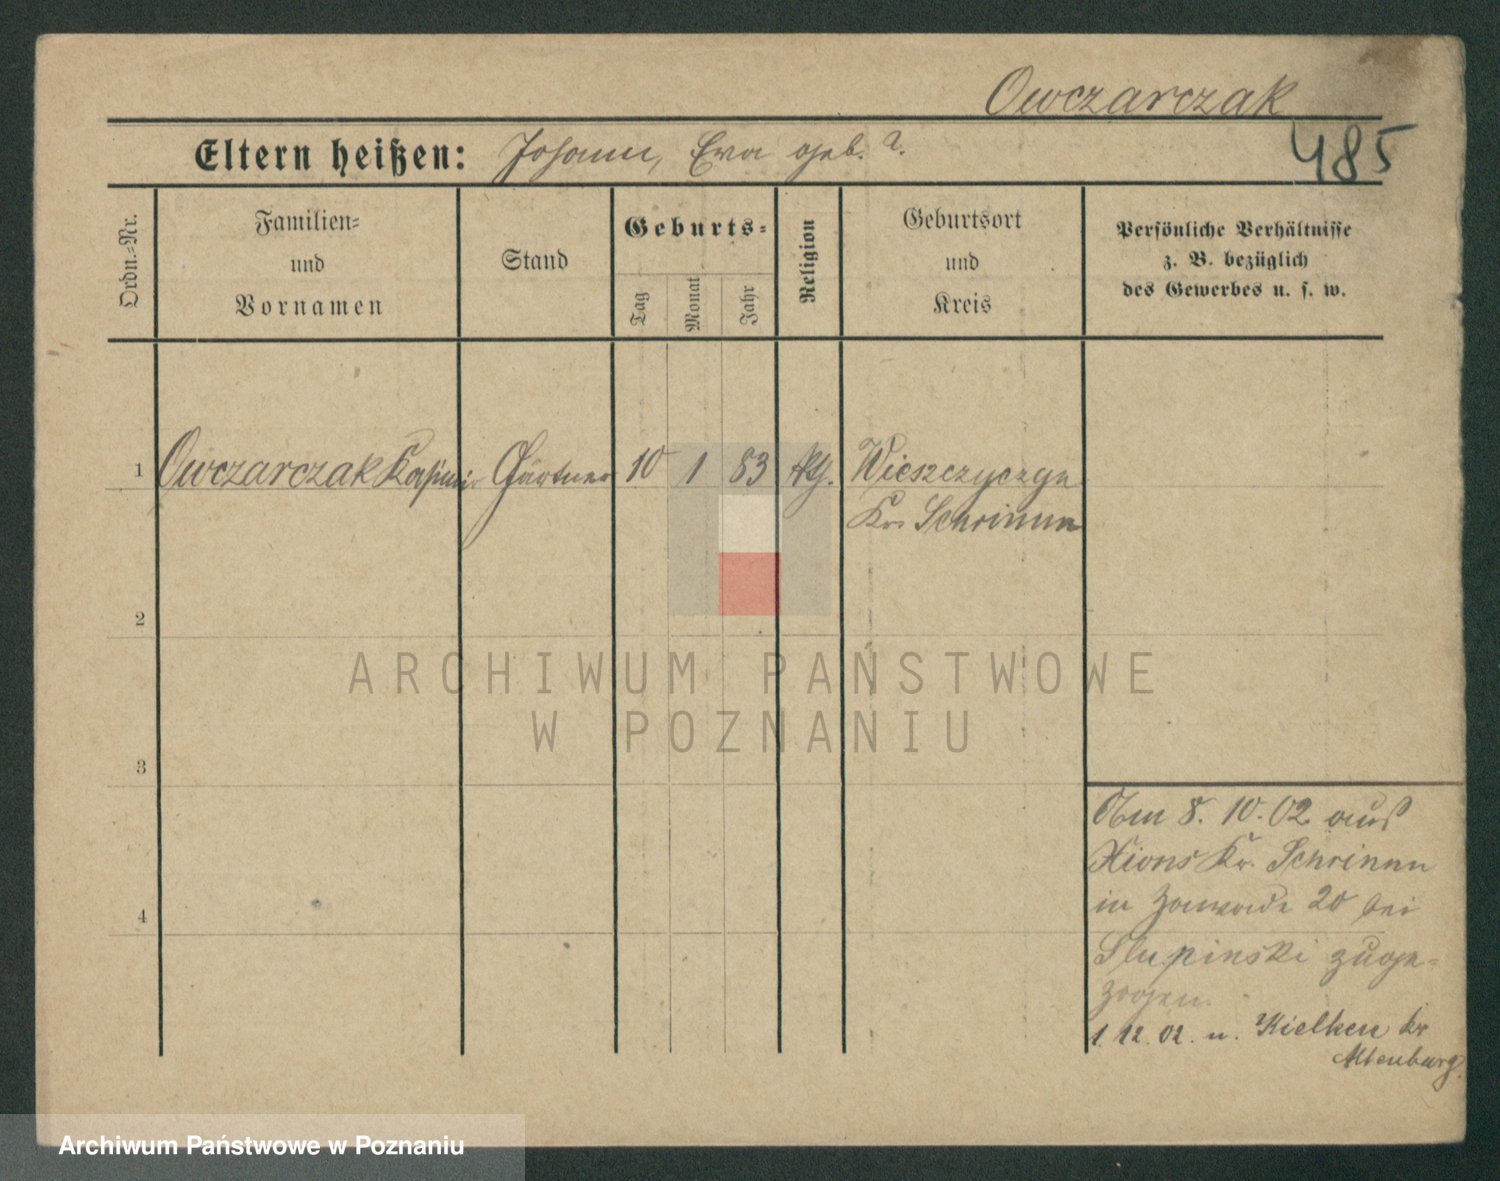 Owczarczak
485
Eltern heißen: Johann, Eva geb. ?.
Ordn.-Nr.
Familien-
und
Vornamen
Stand
Geburts-
Tag
Monat
Jahr
Religion
Geburtsort
und
Kreis
Persönliche Verhältnisse
z. B. bezüglich
des Gewerbes u. s. w.
1 Owczarczak Kasimir Gärtner 10 1 83 kth. Wieszczyczyn
Kr. Schrimm
2
3
4
Am 8. 10. 02 aus
Xions Kr. Schrimm
in Zawade 20 bei
Slupinski zuge-
zogen.
1. 12. 02. n. Kielken Kr
Altenburg.
ARCHIWUM PAŃSTWOWE
W POZNANIU
Archiwum Państwowe w Poznaniu